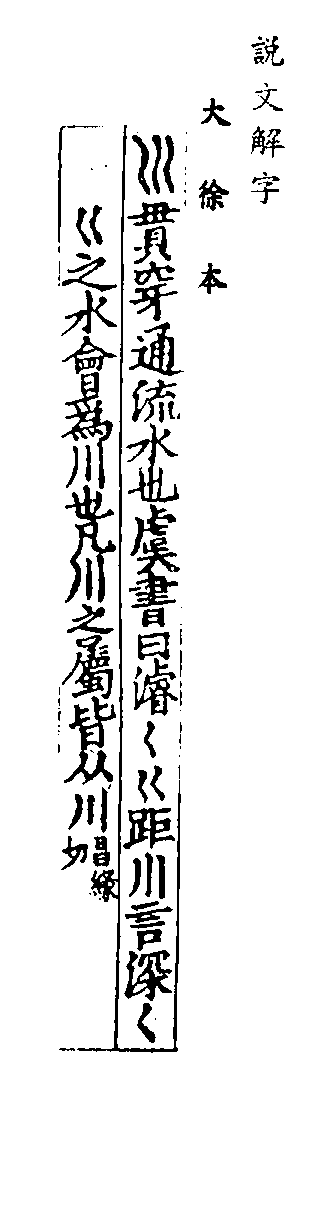 説文解字
大徐本
巛貫穿通流水也虞書曰濬〈巜距川言深〈
巜之水會爲川也凡川之屬皆从川昌緣切